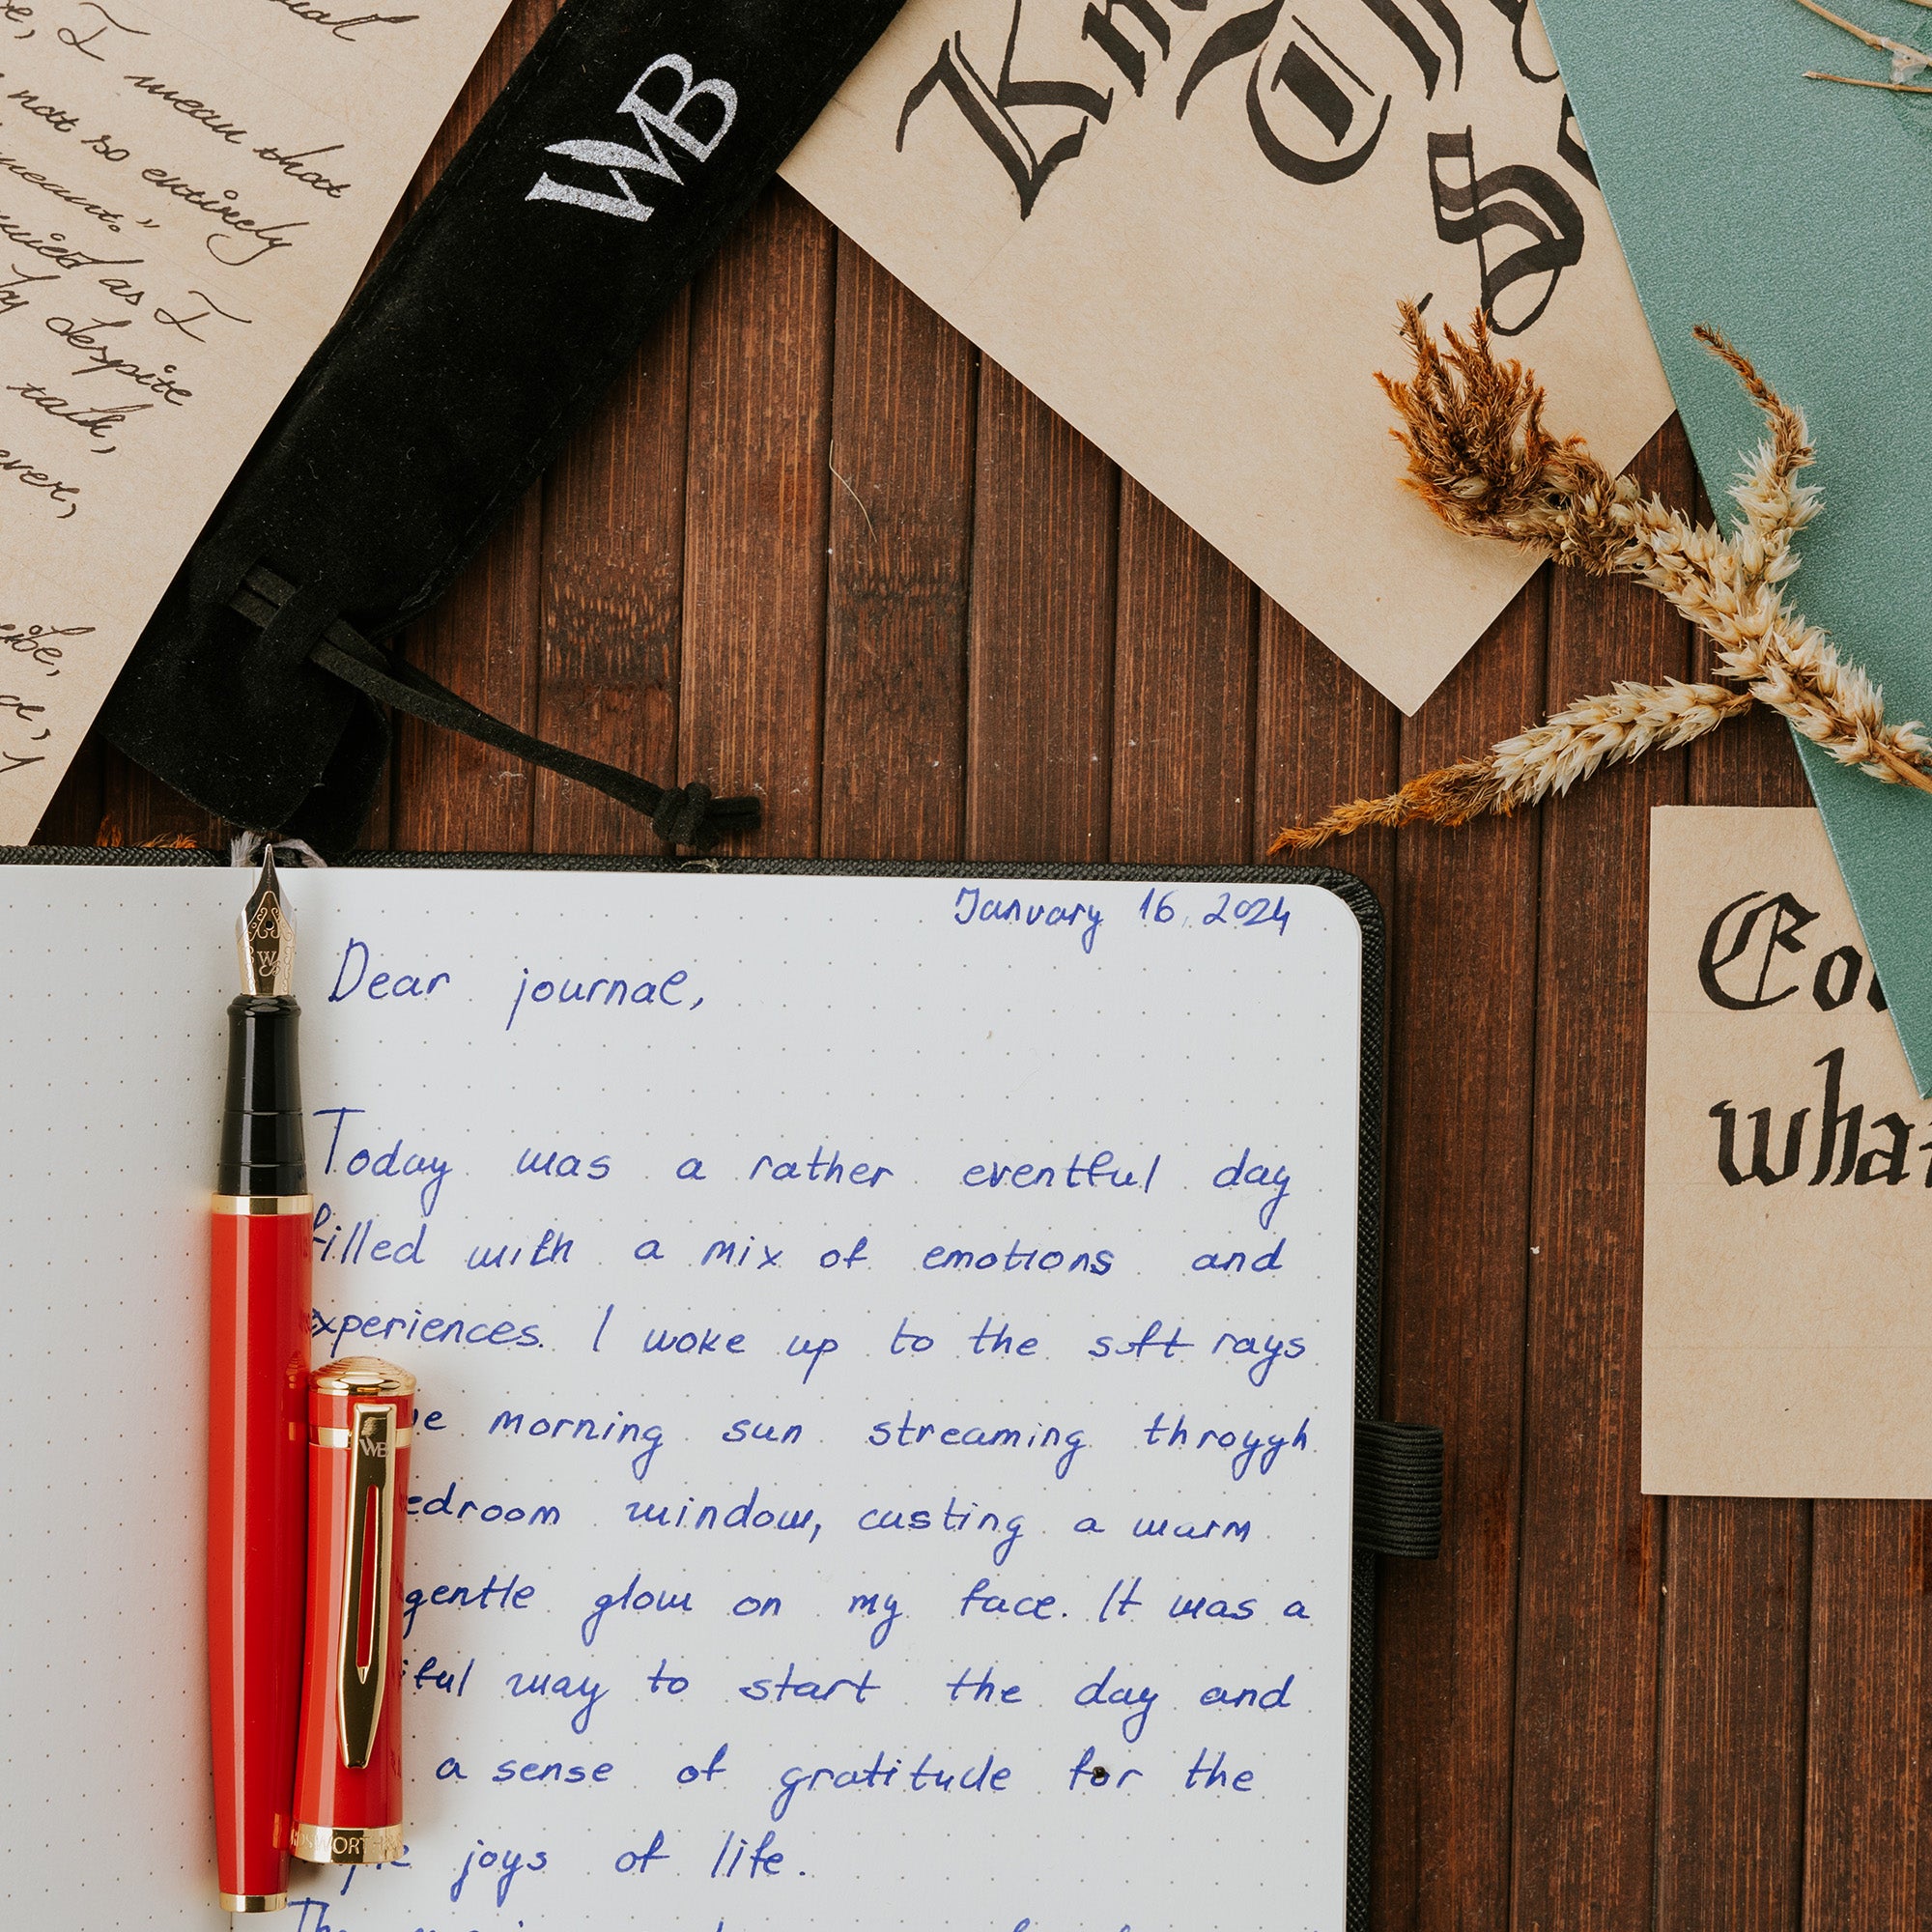 I mean that
not so entirely
meant."
as I
despite
talk,
WB
January 16, 2024
Dear journal,
Today was a rather eventful day
filled with a mix of emotions and
experiences. I woke up to the soft rays
morning sun streaming throygh
window, casting a warm
gentle glow on my face. It was a
way to start the day and
a sense of gratitude for the
joys of life.
W
WB
what